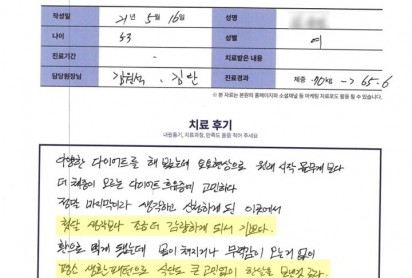 작성일 21년 5월 16일 성명
나이 53 성별 여
진료기간 - 치료받은 내용
담당원장님 치료경과 체중 70kg -> 65.6
※ 본 자료는 본원의 홈페이지와 소셜채널 등 마케팅 자료로도 활용 될 수 있습니다.
치료 후기
내원동기, 치료과정, 만족도 등을 적어 주세요
다양한 다이어트를 해 봤는데 요요현상으로 원래 시작 몸무게보다
더 체중이 오르는 다이어트 후유증에 고민하다
정말 마지막이라 생각하고 선택하게 된 이곳에서
첫달 생각보다 조금 더 감량하게 되서 기쁘다.
환으로 먹게 됐는데 몸이 쳐지거나 무력감이 오는거 없이
평소 생활패턴으로 식단도 큰 고민없이 한달을 보냈던 것 같다.